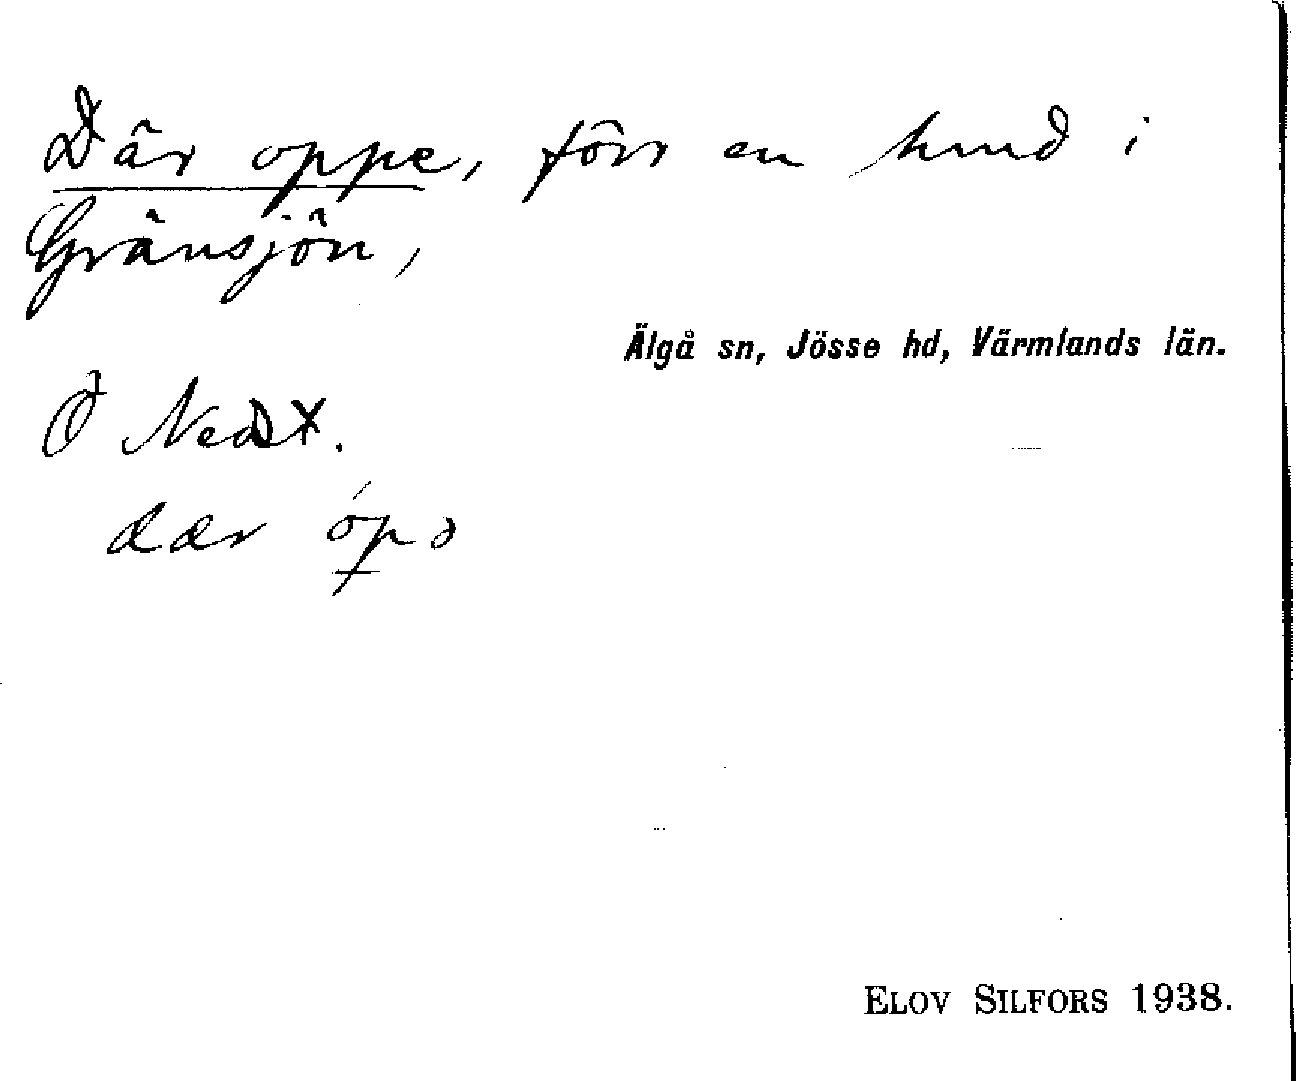 Där oppe, förr en hmd i
Gränsjön,
Älgå sn, Jösse hd, Värmlands län.
dær ópə
ELOV SILFORS 1938.